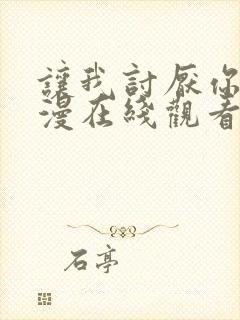 讓我討厭你
漫在綫觀看
石亭